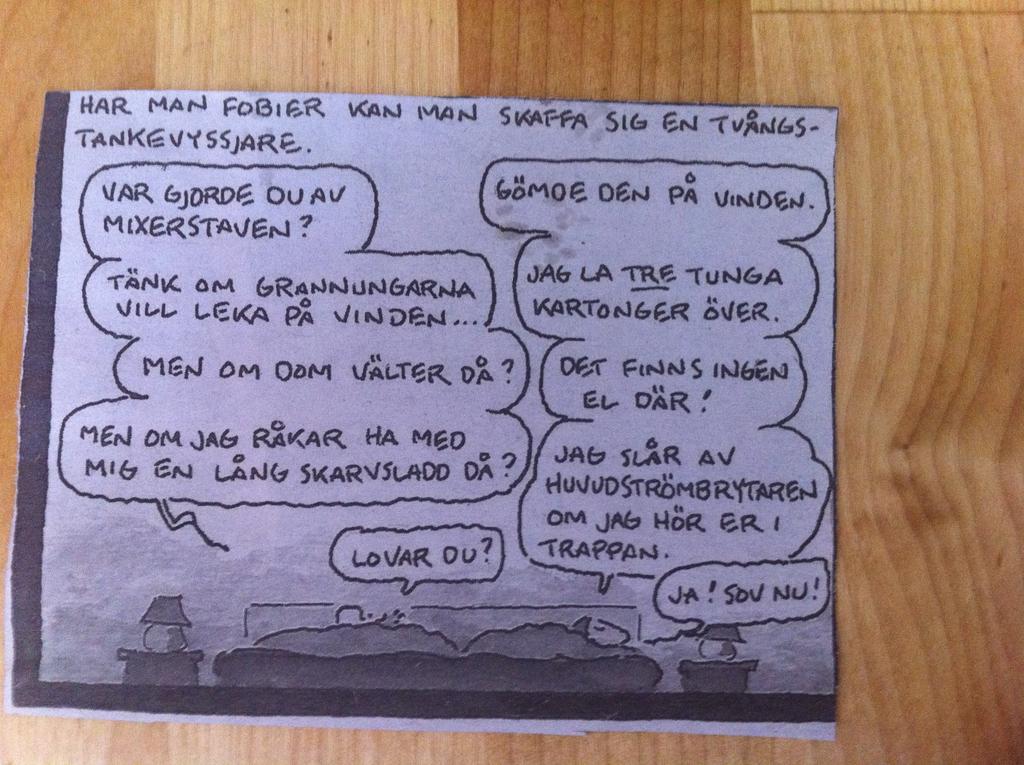 HAR MAN FOBIER KAN MAN SKAFFA SIG EN TVÅNGS-
TANKEVYSSJARE.
VAR GJORDE DU AV
MIXERSTAVEN?
GÖMDE DEN PÅ VINDEN.
TÄNK OM GRANNUNGARNA
VILL LEKA PÅ VINDEN...
JAG LA TRE TUNGA
KARTONGER ÖVER.
MEN OM DOM VÄLTER DÅ?
DET FINNS INGEN
EL DÄR!
MEN OM JAG RÅKAR HA MED
MIG EN LÅNG SKARVSLADD DÅ?
JAG SLÅR AV
HUVUDSTRÖMBRYTAREN
OM JAG HÖR ER I
TRAPPAN.
LOVAR DU?
JA! SOV NU!